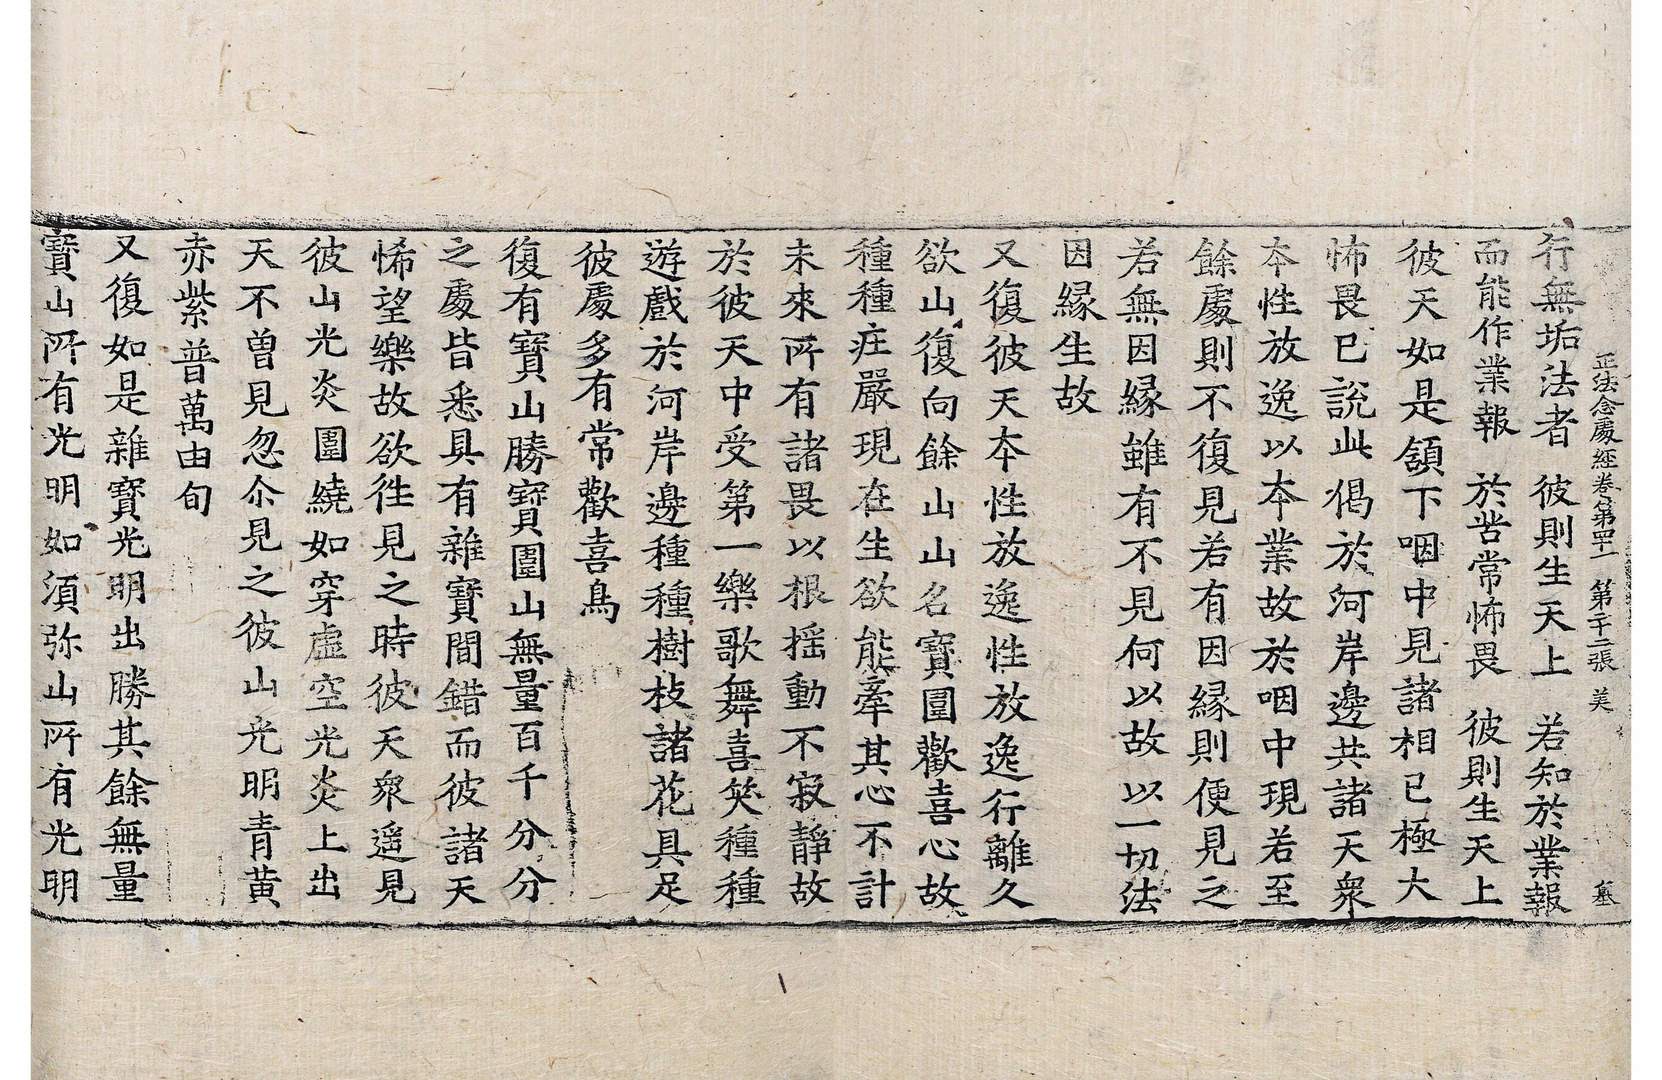 正法念處經卷第四十一 第二十二張 美
行無垢法者 彼則生天上 若知於業報
而能作業報 於苦常怖畏 彼則生天上
彼天如是頷下咽中見諸相已極大
怖畏已說此偈於河岸邊共諸天衆
本性放逸以本業故於咽中現若至
餘處則不復見若有因縁則便見之
若無因縁雖有不見何以故以一切法
因縁生故
又復彼天本性放逸性放逸行離久
欲山復向餘山山名寶圍歡喜心故
種種庄嚴現在生欲能牽其心不計
未來所有諸畏以根揺動不寂靜故
於彼天中受第一樂歌舞喜笑種種
遊戲於河岸邊種種樹枝諸花具足
彼處多有常歡喜鳥
復有寶山勝寶圍山無量百千分分
之處皆悉具有雜寶間錯而彼諸天
悕望樂故欲徃見之時彼天衆遥見
彼山光炎圍繞如穿虛空光炎上出
天不曽見忽尒見之彼山光明青黄
赤紫普萬由旬
又復如是雜寶光明出勝其餘無量
寶山所有光明如須弥山所有光明